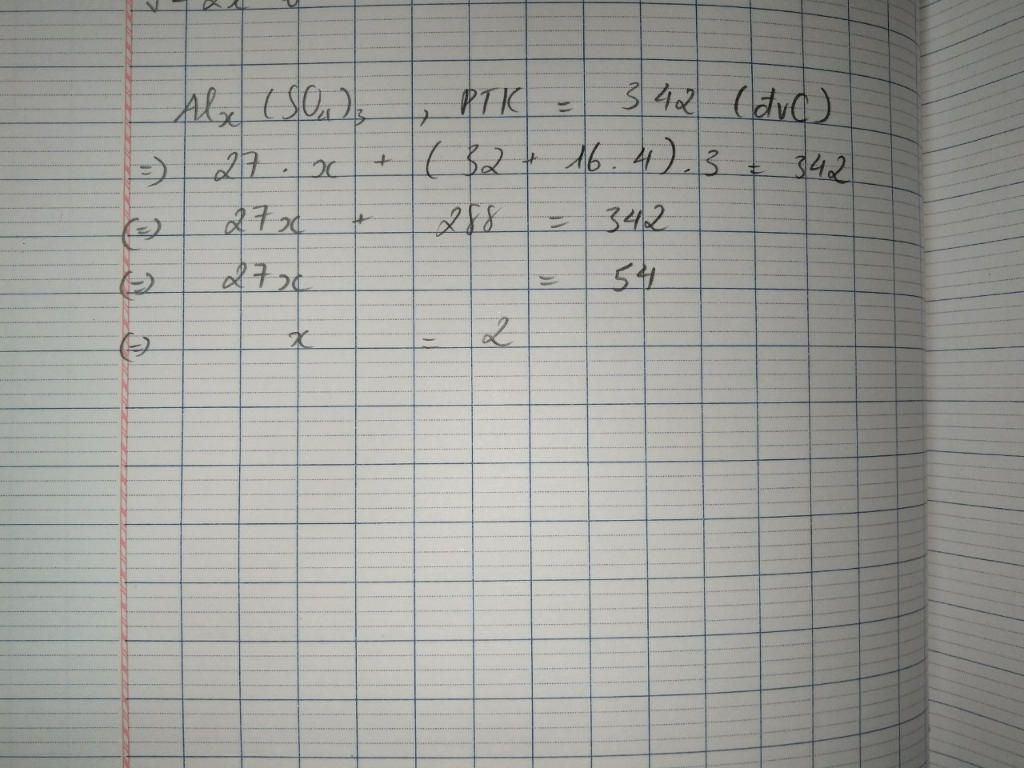 Alₓ (SO₄)₃ , PTK = 342 (đvC)
=) 27 . x + ( 32 + 16 . 4 ) . 3 = 342
(=) 27x + 288 = 342
(=) 27x = 54
(=) x = 2